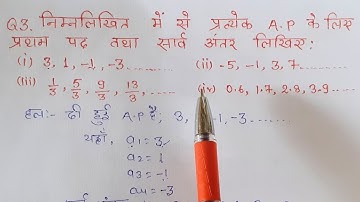 Q3. निम्नलिखित में से प्रत्येक A.P के लिए
प्रथम पद तथा सार्व अंतर लिखिए:
(i) 3, 1, -1, -3...... (ii) -5, -1, 3, 7.......
(iii) 1/3, 5/3, 9/3, 13/3, ..... (iv) 0.6, 1.7, 2.8, 3.9....
हल:- दी हुई A.P है; 3, -1, -3.......
यहाँ, a1 = 3
a2 = 1
a3 = -1
a4 = -3